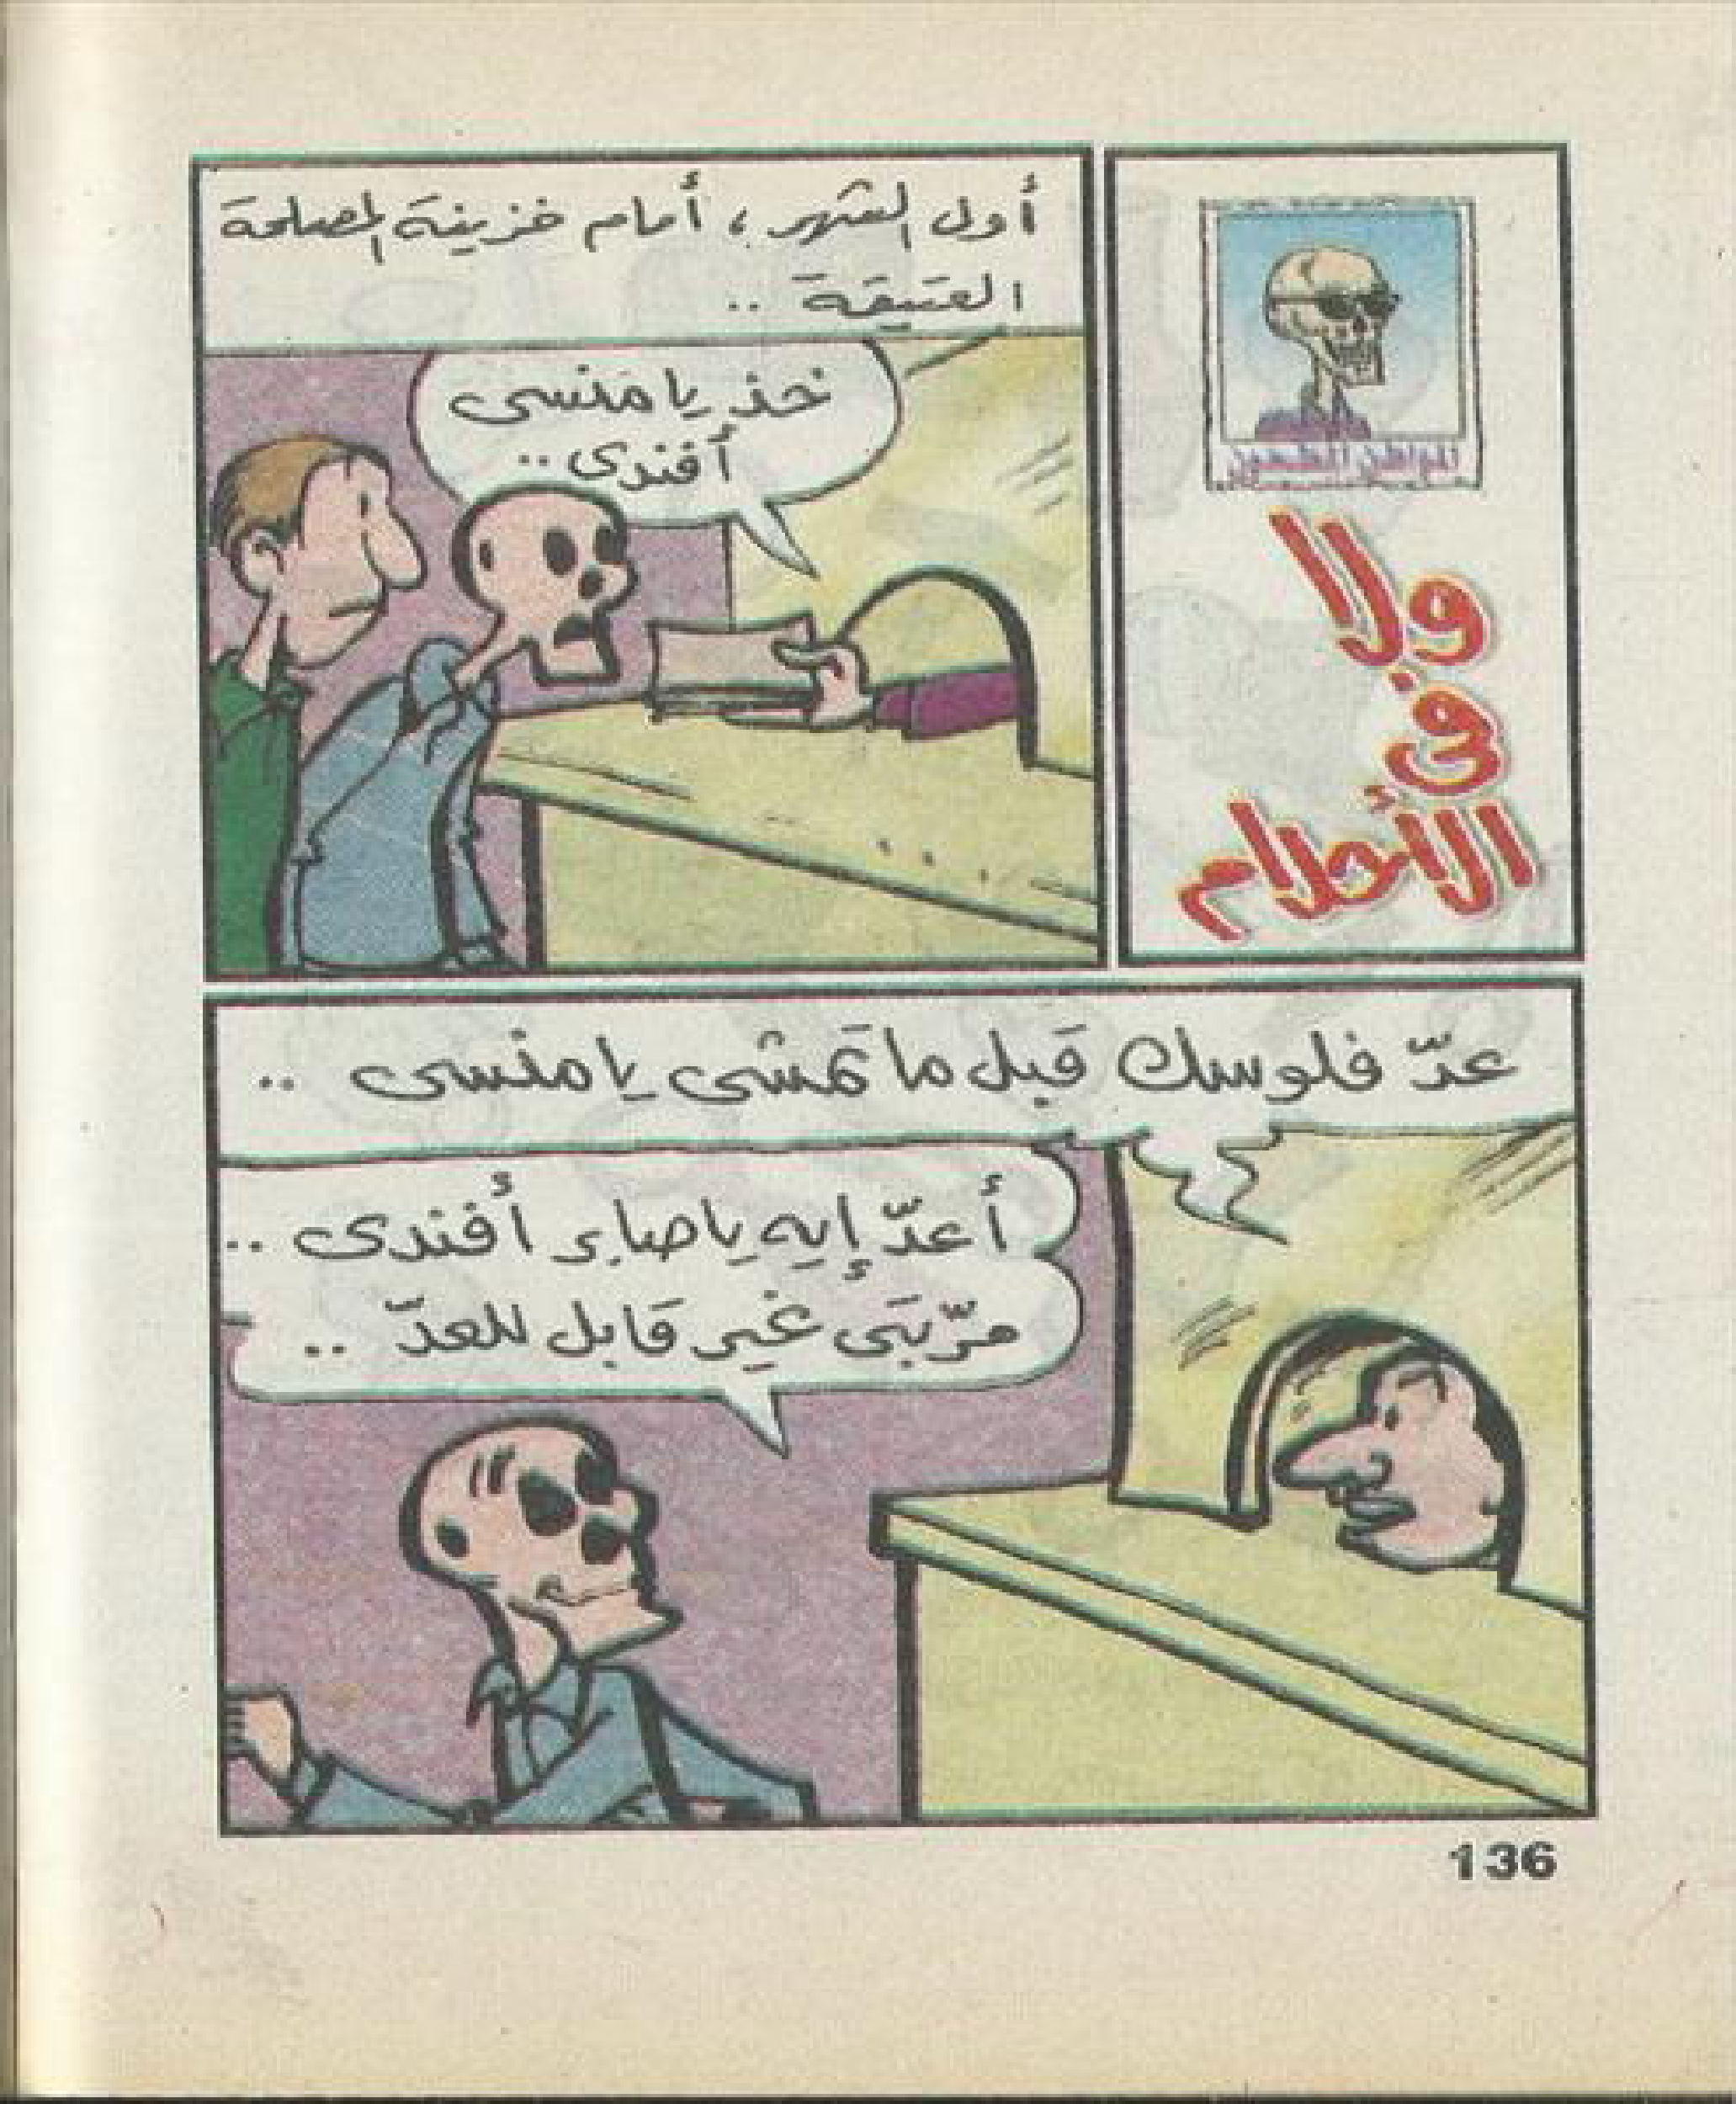 المواطن المطحون
ولا
فى
الأحلام
أول الشهر ، أمام خزينة المصلحة
العتيقة ..
خذ يا منسى
أفندى ..
عدّ فلوسك قبل ما تمشى يا منسى ..
أعدّ إيه يا صابر أفندى ..
مرّتبى غير قابل للعدّ ..
136